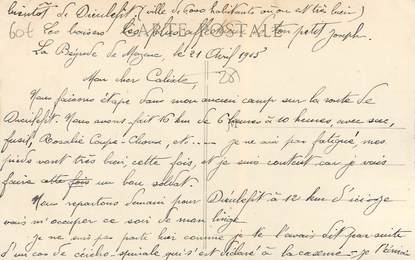 bientôt de Dieulefit (ville de 6000 habitants où on est très bien)
60t Les baisers les plus affectueux ton petit Joseph.
CARTE POSTALE
La Bégude de Mazenc, le 21 Avril 1915
28
Mon cher Calixte,
Nous faisons étape dans mon ancien camp sur la route de
Dieulefit. Nous avons fait 16 km de 6 heures à 10 heures, avec sac,
fusil, Rosalie Coupe-Choux, etc..... Je ne suis pas fatigué, mes
pieds vont très bien cette fois, et je suis content car je vais
faire cette fois un bon soldat.
Nous repartons demain pour Dieulefit à 12 km d'ici et je
vais m'occuper ce soir de mon linge
Je ne suis pas parti hier comme je te l'avais dit par suite
d'un cas de cérébro-spinale qui s'est déclaré à la caserne - je